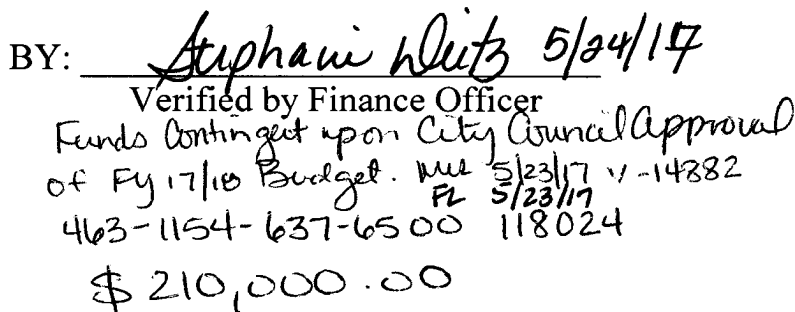 BY: Stephanie Deitz 5/24/17
Verified by Finance Officer
Funds Contingent upon City Council approval
of FY 17/18 Budget. 5/23/17 -14882
FL 5/23/17
463-1154-637-6500 118024
$ 210,000.00